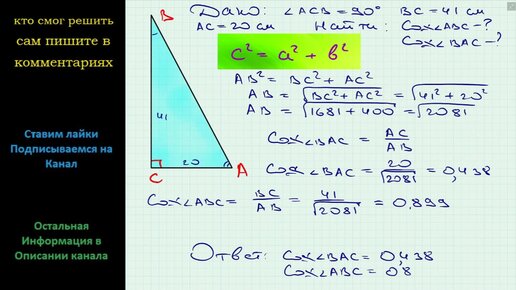 кто смог решить
сам пишите в
комментариях
Ставим лайки
Подписываемся на
Канал
Остальная
Информация в
Описании канала
Дано: ∠ACB = 90° BC = 41 см
AC = 20 см Найти: Cos∠ABC - ?
Cos∠BAC - ?
c² = a² + b²
AB² = BC² + AC²
AB = √BC² + AC² = √41² + 20²
AB = √1681 + 400 = √2081
Cos∠BAC = AC/AB
Cos∠BAC = 20/√2081 = 0,438
Cos∠ABC = BC/AB = 41/√2081 = 0,899
Ответ: Cos∠BAC = 0,438
Cos∠ABC = 0,8
B
41
20
C
A